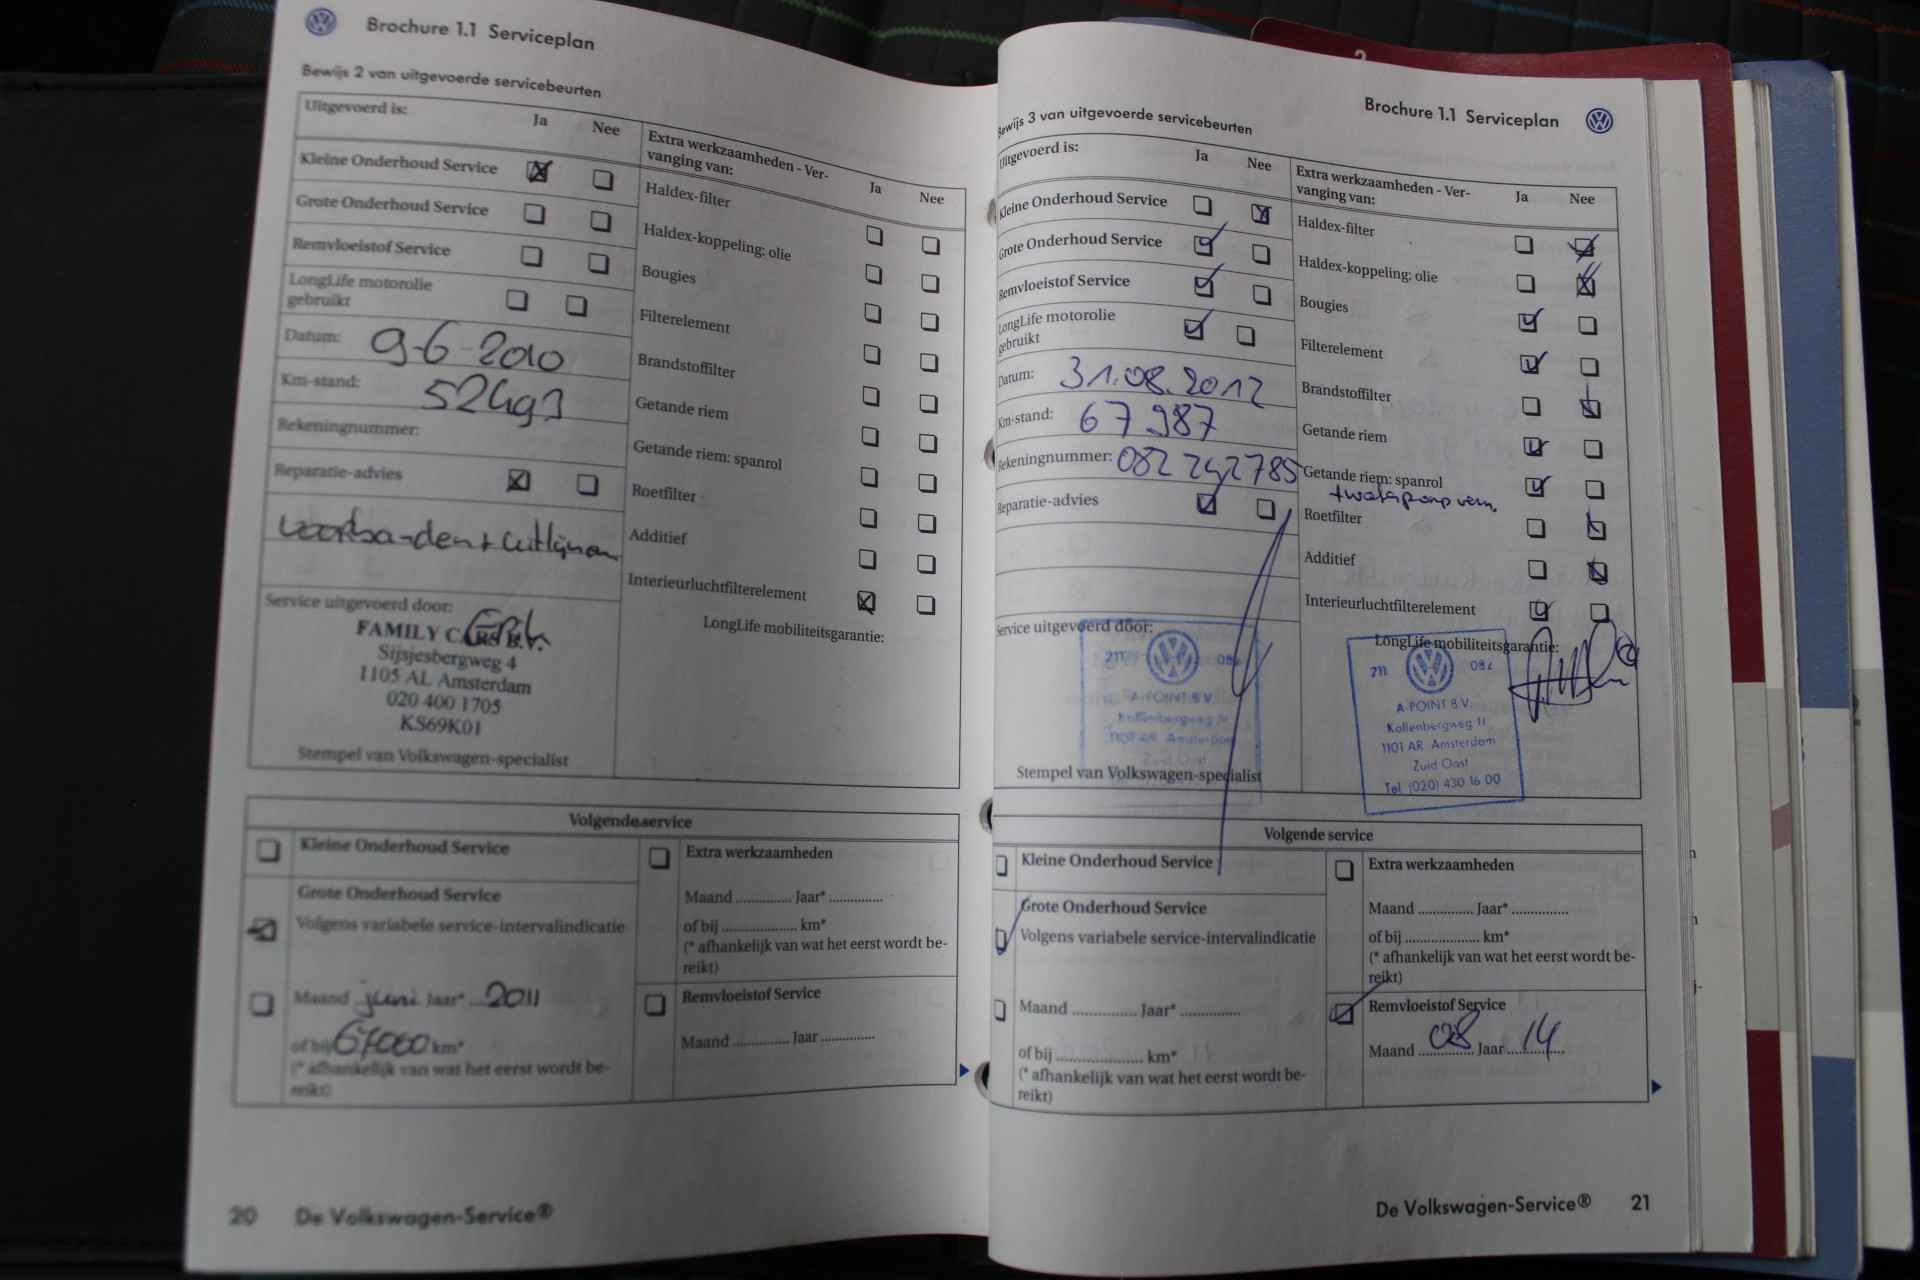 Brochure 1.1 Serviceplan
Bewijs 2 van uitgevoerde servicebeurten
Uitgevoerd is:
Ja
Nee
Kleine Onderhoud Service
Grote Onderhoud Service
Remvloeistof Service
LongLife motorolie
gebruikt
Datum: 9-6-2010
Km-stand: 52493
Rekeningnummer:
Reparatie-advies
voorbanden + uitlijnen
Service uitgevoerd door:
FAMILY CARS B.V.
Sijsjesbergweg 4
1105 AL Amsterdam
020 400 1705
KS69K01
Stempel van Volkswagen-specialist
Extra werkzaamheden - Ver-
vanging van:
Ja
Nee
Haldex-filter
Haldex-koppeling: olie
Bougies
Filterelement
Brandstoffilter
Getande riem
Getande riem: spanrol
Roetfilter
Additief
Interieurluchtfilterelement
LongLife mobiliteitsgarantie:
Volgende service
Kleine Onderhoud Service
Grote Onderhoud Service
Volgens variabele service-intervalindicatie
Maand juni Jaar* 2011
of bij 67000 km*
(* afhankelijk van wat het eerst wordt be-
reikt)
Extra werkzaamheden
Maand .............. Jaar* ..............
of bij .................... km*
(* afhankelijk van wat het eerst wordt be-
reikt)
Remvloeistof Service
Maand .............. Jaar ..............
20 De Volkswagen-Service®
Brochure 1.1 Serviceplan
Bewijs 3 van uitgevoerde servicebeurten
Uitgevoerd is:
Ja
Nee
Kleine Onderhoud Service
Grote Onderhoud Service
Remvloeistof Service
LongLife motorolie
gebruikt
Datum: 31.08.2012
Km-stand: 67987
Rekeningnummer: 082 242785
Reparatie-advies
Service uitgevoerd door:
211 082
A-POINT B.V.
Kollenbergweg 11
1101 AR Amsterdam
Zuid Oost
Stempel van Volkswagen-specialist
Extra werkzaamheden - Ver-
vanging van:
Ja
Nee
Haldex-filter
Haldex-koppeling: olie
Bougies
Filterelement
Brandstoffilter
Getande riem
Getande riem: spanrol
+ waterpomp vern.
Roetfilter
Additief
Interieurluchtfilterelement
LongLife mobiliteitsgarantie:
211 082
A-POINT B.V.
Kollenbergweg 11
1101 AR Amsterdam
Zuid Oost
Tel (020) 430 16 00
Volgende service
Kleine Onderhoud Service
Grote Onderhoud Service
Volgens variabele service-intervalindicatie
Maand ................ Jaar* ...............
of bij ...................... km*
(* afhankelijk van wat het eerst wordt be-
reikt)
Extra werkzaamheden
Maand .............. Jaar* ..............
of bij .................... km*
(* afhankelijk van wat het eerst wordt be-
reikt)
Remvloeistof Service
Maand 08 Jaar 14
De Volkswagen-Service® 21